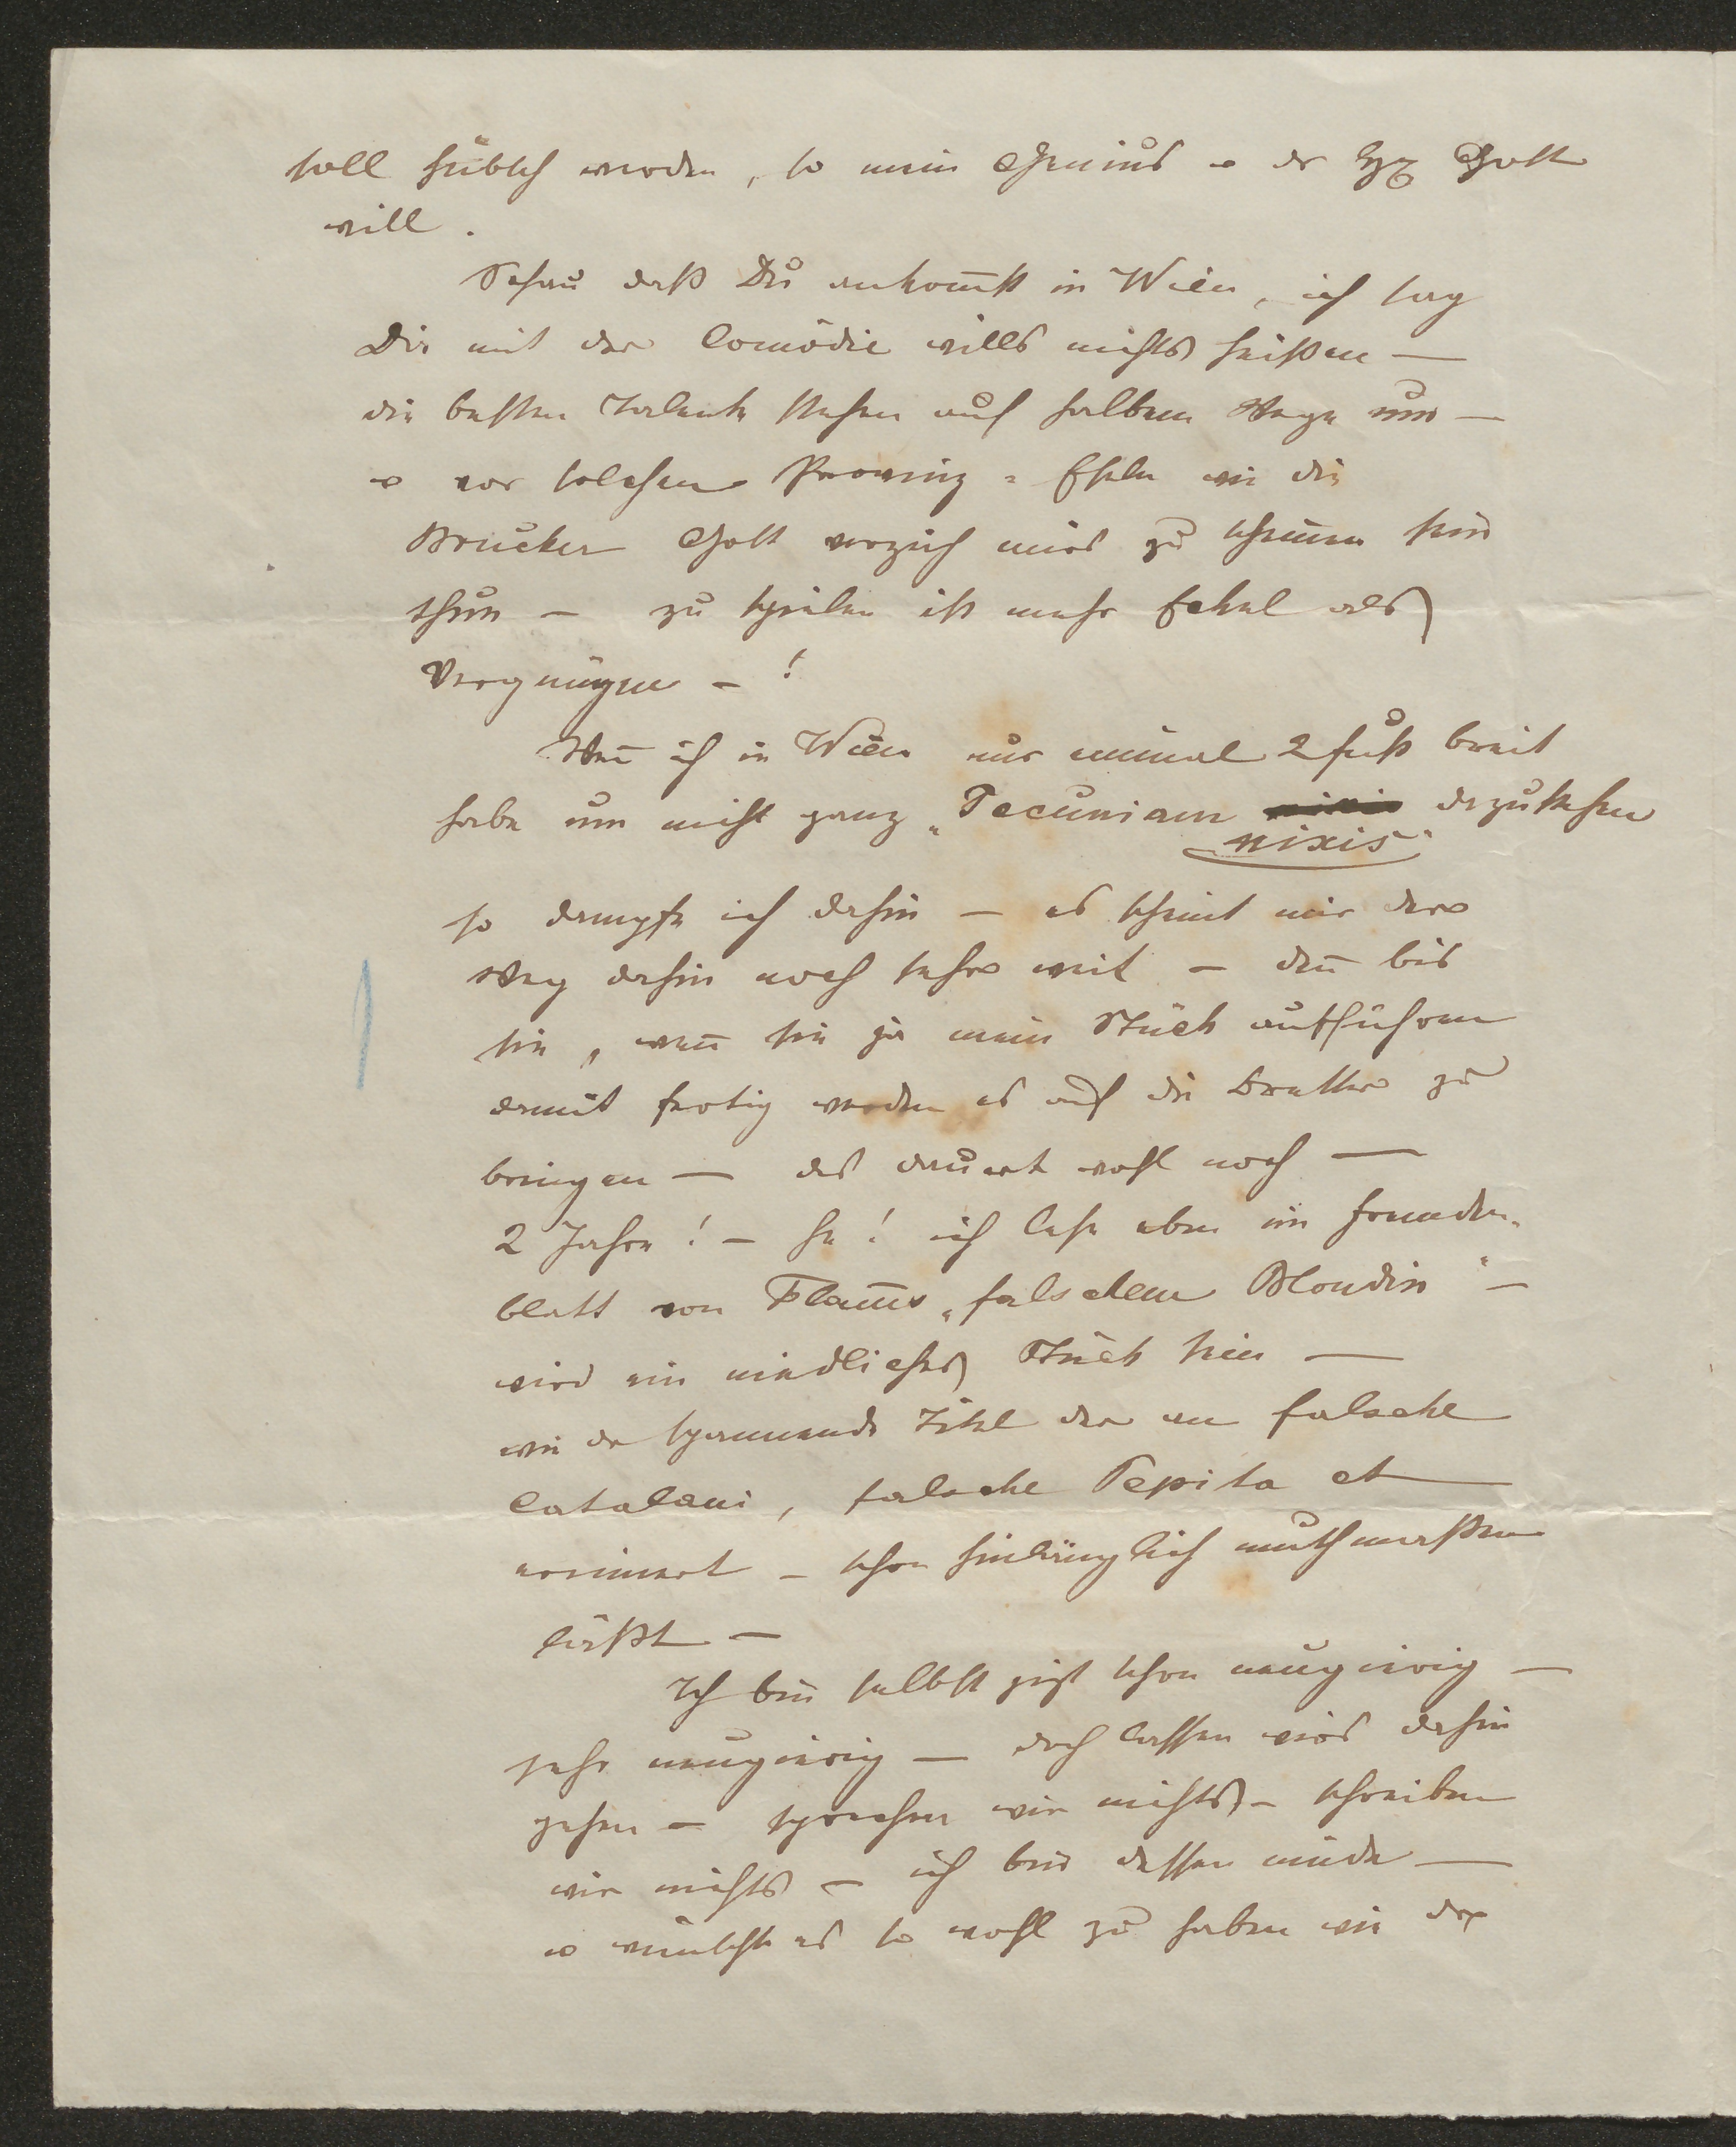 soll hübsch werden, so mein Genius u der Hr Gott
will.
Schau daß Du ankom̄st in Wien, ich sag
Dir mit der Comödie wills nichts heißen —
die besten Talente stehen auf halbem Wege um —
u vor solchen Provinz = Eseln wie die
Brucker Gott verzeih mirs zu sein
thun — zu spielen ist mehr Eckel als
Vergnügen — !
Wen̄ ich in Wien nur einmal 2 fuß breit
habe um nicht ganz „Pecuniam dazustehen
nixis“
so dampfe ich dahin — es scheint mir der
Weg dahin noch sehr weit — den̄ bis
sie, wen̄ sie ja mein Stück aufführen
damit fertig werden es auf die Bretter zu
bringen — das dauert wohl noch —
2 Jahre ! — he ! ich lese eben im Fremden-
blatt von Flam̄s „falschem Blondin“ —
wird ein niedliches Stück sein —
wie der spannende Titel der an falsche
Catalani, falsche Pepita et
erinnert — schon hinlänglich muthmaßen
läßt —
Ich bin selbst jezt schon neugierig —
sehr neugierig — doch lassen wirs dahin
gehen — sprechen wir nichts — schreiben
wir nichts — ich bin dessen müde —
u wünschte es so wohl zu haben wie der